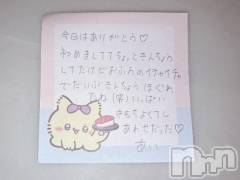 今日はありがとう♡
初めましてでちょっときんちょう
してたけどおふろのイチャイチャ
でだいぶきんちょうほぐれ
たね(笑)いっぱい
きもちよくてし
あわせだった♡
あい